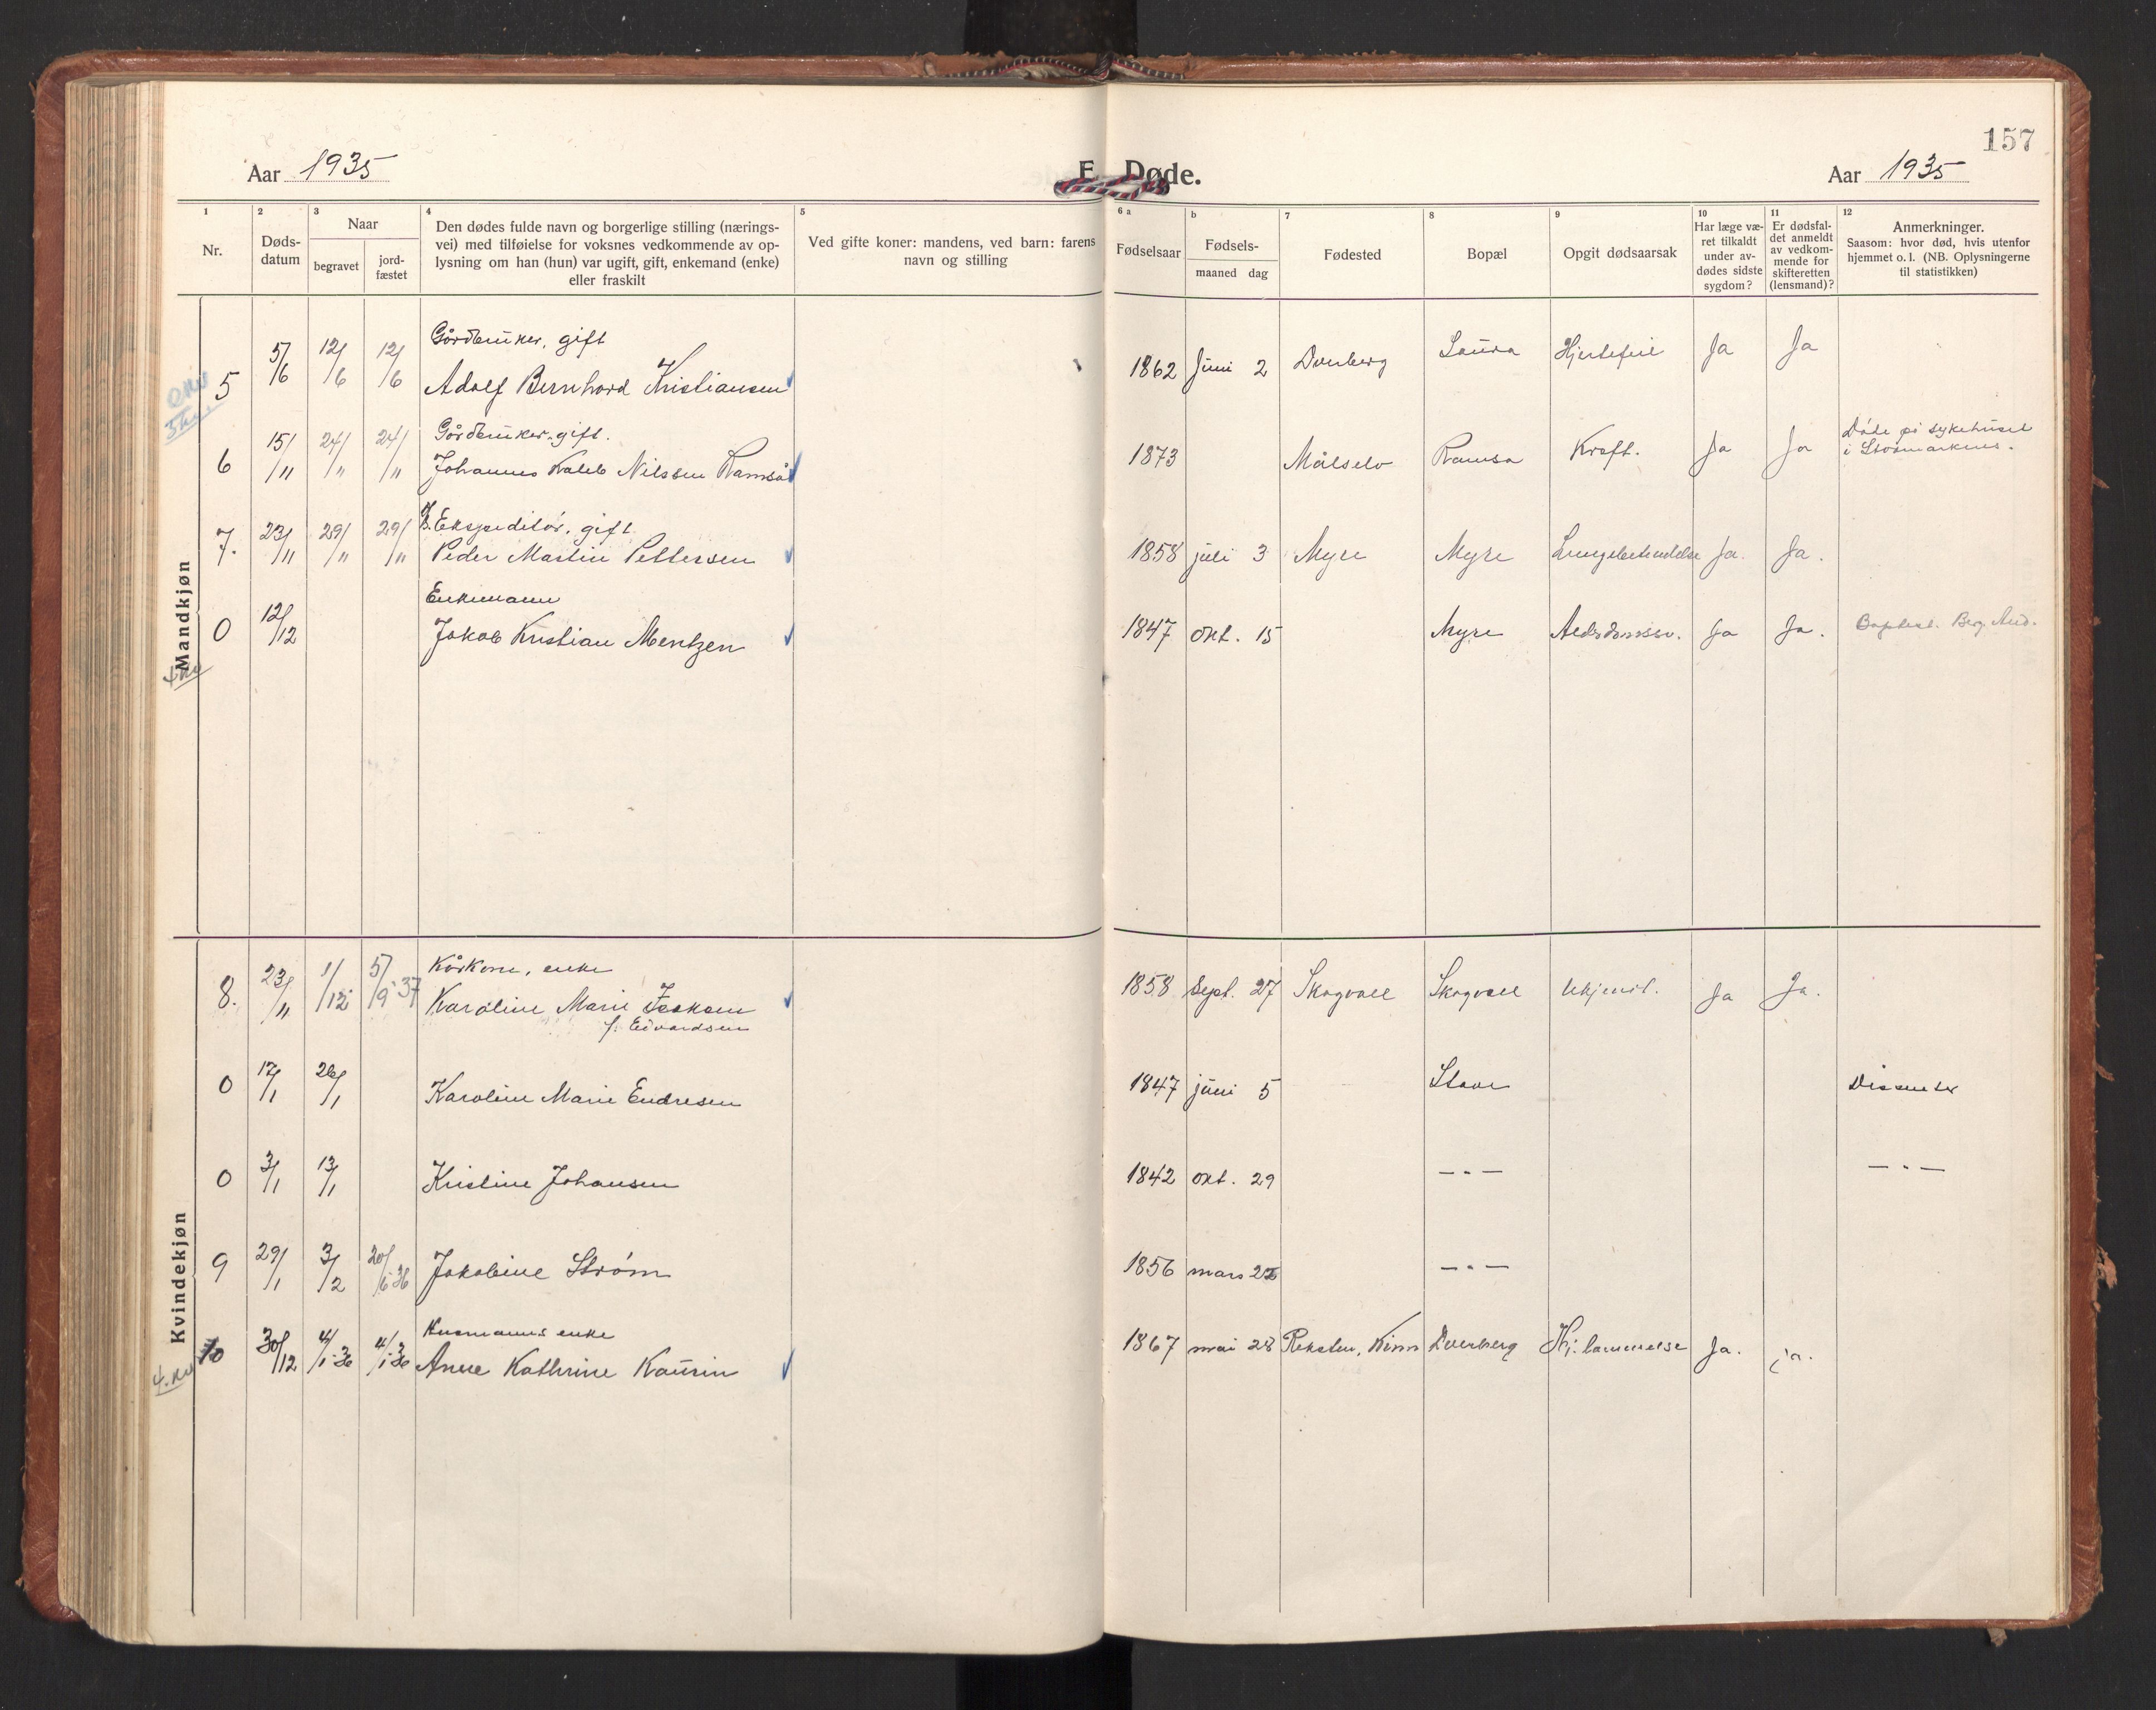 157
Aar 1935
E. Døde.
Aar 1935
1 Nr.
2 Døds-
datum
3 Naar
begravet
jord-
fæstet
4 Den dødes fulde navn og borgerlige stilling (nærings-
vei) med tilføielse for voksnes vedkommende av op-
lysning om han (hun) var ugift, gift, enkemand (enke)
eller fraskilt
5 Ved gifte koner: mandens, ved barn: farens
navn og stilling
6 a Fødselsaar
b Fødsels-
maaned dag
7 Fødested
8 Bopæl
9 Opgit dødsaarsak
10 Har læge væ-
ret tilkaldt
under av-
dødes sidste
sygdom?
11 Er dødsfal-
det anmeldt
av vedkom-
mende for
skifteretten
(lensmand)?
12 Anmerkninger.
Saasom: hvor død, hvis utenfor
hjemmet o. l. (NB. Oplysningerne
til statistikken)
Mandkjøn
Gårdbruker, gift
5 5/6 12/6 12/6 Adolf Bernhard Kristiansen 1862 Juni 2 Dverberg Saura Hjertefeil Ja Ja
Gårdbruker, gift.
6 15/11 24/11 24/11 Johannes Kaleb Nilssen Ramså 1873 Målselv Ramsa Kreft. Ja Ja Døde på sykehuset
i Stokmarknes.
Ekspeditør, gift
7. 23/11 29/11 29/11 Peder Martin Pettersen 1858 juli 3 Myre Myre Lungebetendelse Ja. Ja.
Enkemann
0 12/12 Jakob Kristian Mentzen 1847 okt. 15 Myre Alderdomssv. Ja Ja. Baptist. Berg And.
Kvindekjøn
Kårkone, enke
8. 23/11 1/12 5/9-37 Karoline Marie Isaksen 1858 Sept. 27 Skogvoll Skogvoll Ukjent. Ja Ja.
f. Edvardsen
0 17/1 26/1 Karoline Marie Endresen 1847 juni 5 Stave Dissenter
0 3/1 13/1 Kristine Johansen 1842 okt. 29 — " — — " —
9 29/1 3/2 20/6-36 Jakobine Strøm 1856 mars — " —
Husmanns enke
10 30/12 4/1-36 4/1-36 Anne Kathrine Kaurin 1867 mai 28 Reksten, Kinn Dverberg Hj. lammelse Ja. ja.
4. kv